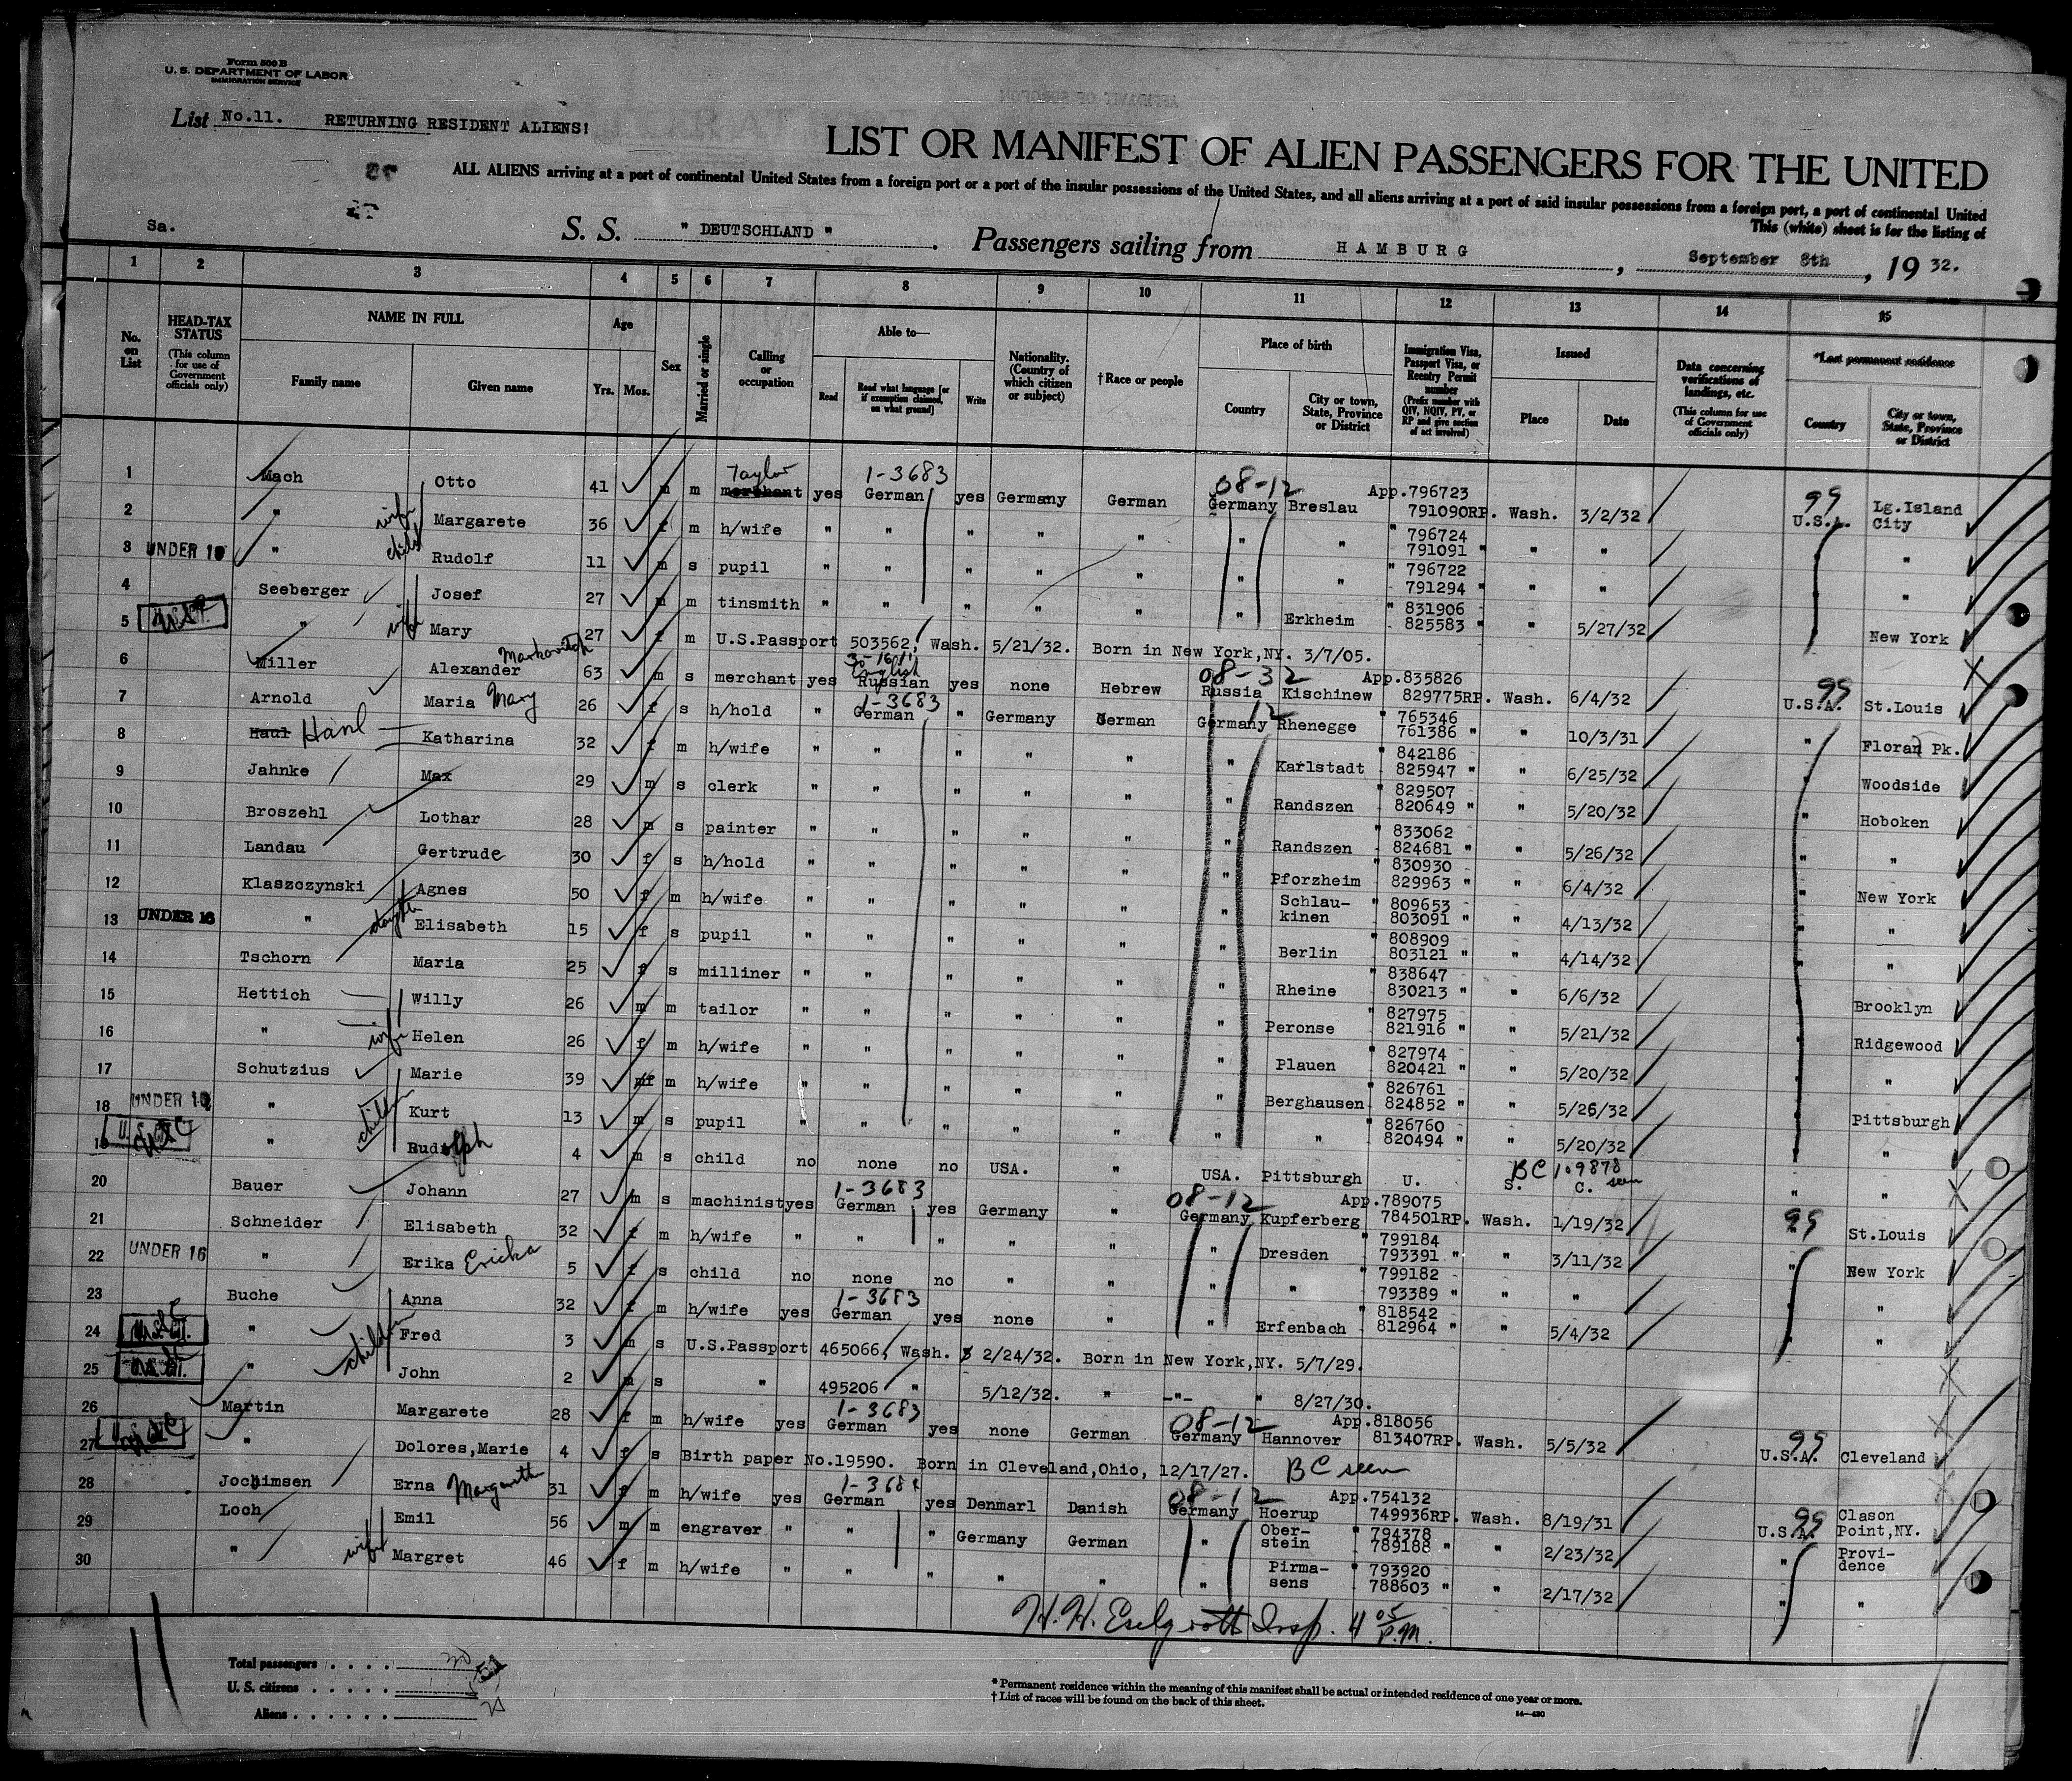 Form 500 B
U. S. DEPARTMENT OF LABOR
IMMIGRATION SERVICE
List No.11. RETURNING RESIDENT ALIENS!
LIST OR MANIFEST OF ALIEN PASSENGERS FOR THE UNITED
ALL ALIENS arriving at a port of continental United States from a foreign port or a port of the insular possessions of the United States, and all aliens arriving at a port of said insular possessions from a foreign port, a port of continental United
This (white) sheet is for the listing of
Sa.
S. S. " DEUTSCHLAND " . Passengers sailing from HAMBURG , September 8th , 19 32.
1 2 3 4 5 6 7 8 9 10 11 12 13 14 15
No. on List
HEAD-TAX STATUS (This column for use of Government officials only)
NAME IN FULL
Family name
Given name
Age
Yrs. Mos.
Sex
Married or single
Calling or occupation
Able to—
Read
Read what language [or if exemption claimed, on what ground]
Write
Nationality. (Country of which citizen or subject)
†Race or people
Place of birth
Country
City or town, State, Province or District
Immigration Visa, Passport Visa, or Reentry Permit number
(Prefix number with QIV, NQIV, PV, or RP and give section of act involved)
Issued
Place
Date
Data concerning verifications of landings, etc.
(This column for use of Government officials only)
*Last permanent residence
Country
City or town, State, Province or District
1 Mach Otto 41 m m Taylor merchant yes 1-3683 German yes Germany German 08-12 Germany Breslau App.796723 791090RP. Wash. 3/2/32 99 U.S.A. Lg.Island City
2 " wife Margarete 36 f m h/wife " " " " " " " " 796724 791091 " " " " "
3 UNDER 16 " child Rudolf 11 m s pupil " " " " " " " " 796722 791294 " " " " "
4 Seeberger Josef 27 m m tinsmith " " " " " " Erkheim " 831906 825583 " " 5/27/32 New York
5 " wife Mary 27 f m U.S.Passport 503562, Wash. 5/21/32. Born in New York,NY. 3/7/05.
6 Miller Alexander Markovitch 63 m s merchant yes English Russian yes none Hebrew 08-32 Russia Kischinew App.835826 829775RP. Wash. 6/4/32 99 U.S.A. St.Louis
7 Arnold Maria Mary 26 f s h/hold " 1-3683 German " Germany German 12 Germany Rhenegge " 765346 761386 " " 10/3/31 " Floran Pk.
8 Haul Hanl Katharina 32 f m h/wife " " " " " " Karlstadt " 842186 825947 " " 6/25/32 Woodside
9 Jahnke Max 29 m s clerk " " " " " " Randszen " 829507 820649 " " 5/20/32 " Hoboken
10 Broszehl Lothar 28 m s painter " " " " " " Randszen " 833062 824681 " " 5/26/32 " "
11 Landau Gertrude 30 f s h/hold " " " " " " Pforzheim " 830930 829963 " " 6/4/32 " New York
12 Klaszczynski Agnes 50 f m h/wife " " " " " " Schlau-kinen " 809653 803091 " " 4/13/32 " "
13 UNDER 16 " daughter Elisabeth 15 f s pupil " " " " " " Berlin " 808909 803121 " " 4/14/32 " "
14 Tschorn Maria 25 f s milliner " " " " " " Rheine " 838647 830213 " " 6/6/32 Brooklyn
15 Hettich Willy 26 m m tailor " " " " " " Peronse " 827975 821916 " " 5/21/32 Ridgewood
16 " wife Helen 26 f m h/wife " " " " " " Plauen " 827974 820421 " " 5/20/32 " "
17 Schutzius Marie 39 f m h/wife " " " " " " Berghausen " 826761 824852 " " 5/26/32 Pittsburgh
18 UNDER 16 " children Kurt 13 m s pupil " " " " " " " 826760 820494 " " 5/20/32 " "
19 " Rudolph 4 m s child no none no USA. " USA. Pittsburgh U. S. C. BC 109878 seen " "
20 Bauer Johann 27 m s machinist yes 1-3683 German yes Germany " 08-12 Germany Kupferberg App.789075 784501RP. Wash. 1/19/32 99 St.Louis
21 Schneider Elisabeth 32 f m h/wife " " " " " " Dresden " 799184 793391 " " 3/11/32 " New York
22 UNDER 16 " Erika Ericka 5 f s child no none no " " " " " 799182 793389 " " " " "
23 Buche Anna 32 f m h/wife yes 1-3683 German yes none " " Erfenbach " 818542 812964 " " 5/4/32 " "
24 " children Fred 3 m s U.S.Passport 465066, Wash. 2/24/32. Born in New York,NY. 5/7/29.
25 " John 2 m s " 495206 " 5/12/32. " -"- " 8/27/30.
26 Martin Margarete 28 f m h/wife yes 1-3683 German yes none German 08-12 Germany Hannover App.818056 813407RP. Wash. 5/5/32 99 U.S.A. Cleveland
27 " Dolores,Marie 4 f s Birth paper No.19590. Born in Cleveland,Ohio, 12/17/27. BC seen
28 Jochimsen Erna Margareth 31 f m h/wife yes 1-3684 German yes Denmarl Danish 08-12 Germany Hoerup App.754132 749936RP. Wash. 8/19/31 99 U.S.A. Clason Point,NY.
29 Loch Emil 56 m m engraver " " " Germany German " Ober-stein " 794378 789188 " " 2/23/32 " Provi-dence
30 " wife Margret 46 f m h/wife " " " " " " Pirma-sens " 793920 788603 " " 2/17/32 "
Insp. 4 05 P.M.
Total passengers . . . . 30
U. S. citizens . . . . .
Aliens . . . . . .
* Permanent residence within the meaning of this manifest shall be actual or intended residence of one year or more.
† List of races will be found on the back of this sheet.
14—430